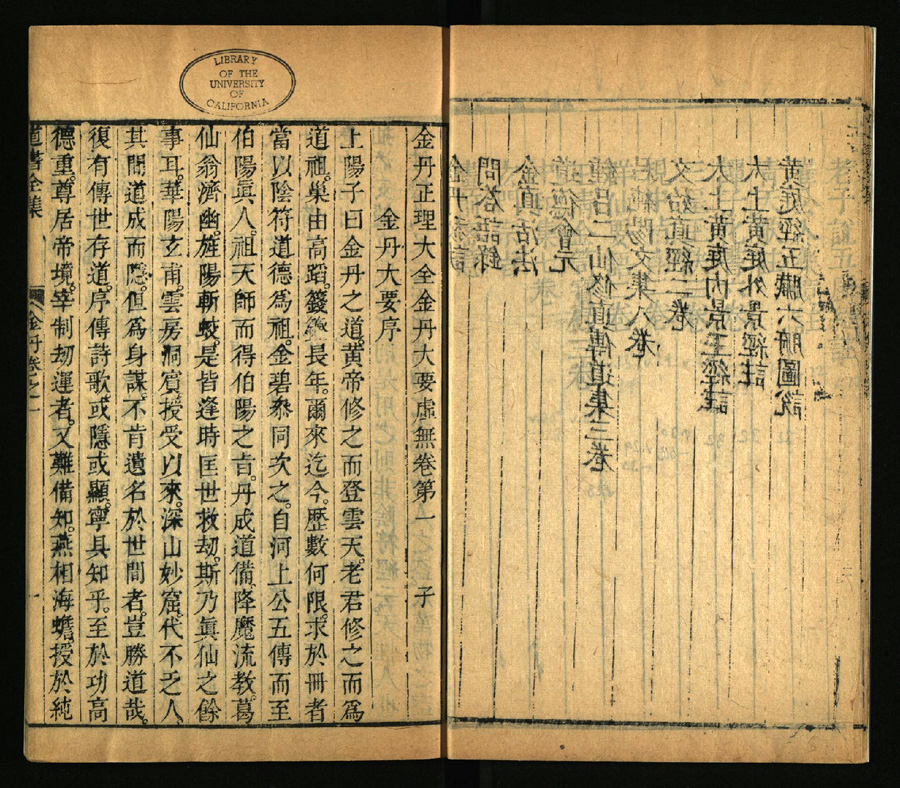 黃庭經五臟六腑圖說
太上黃庭外景經註
太上黃庭內景玉經註
文始真經
純陽文集八卷
鍾呂二仙修真傳道集三卷
道德會元
問答語錄
LIBRARY
OF THE
UNIVERSITY
OF
CALIFORNIA
金丹正理大全金丹大要虛無卷第一 子
金丹大要序
上陽子曰金丹之道。黃帝修之而登雲天。老君修之而爲
道祖。巢由高蹈。籛鏗長年。爾來迄今。歷數何限。求於冊者
當以陰符道德爲祖。金碧叅同次之。自河上公五傳而至
伯陽眞人。祖天師而得伯陽之旨。丹成道備。降魔流教。葛
仙翁濟幽。旌陽斬蛟。是皆逢時匡世救劫。斯乃眞仙之餘
事耳。華陽玄甫。雲房洞賓。授受以來。深山妙窟。代不乏人
其間道成而隱。但爲身謀。不肯遺名於世間者。豈勝道哉。
復有傳世存道。序傳詩歌。或隱或顯。寧具知乎。至於功高
德重。尊居帝境。宰制劫運者。又難備知。燕相海蟾。授於純
道書全集 金丹卷之一 一